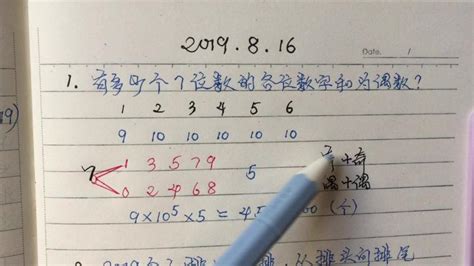 2019.8.16
Date. /
1. 有多少个7位数的各位数字和为偶数?
1 2 3 4 5 6
9 10 10 10 10 10
7 1 3 5 7 9 5 +奇
0 2 4 6 8 偶+偶
9×10⁵×5=45 (个)
9)